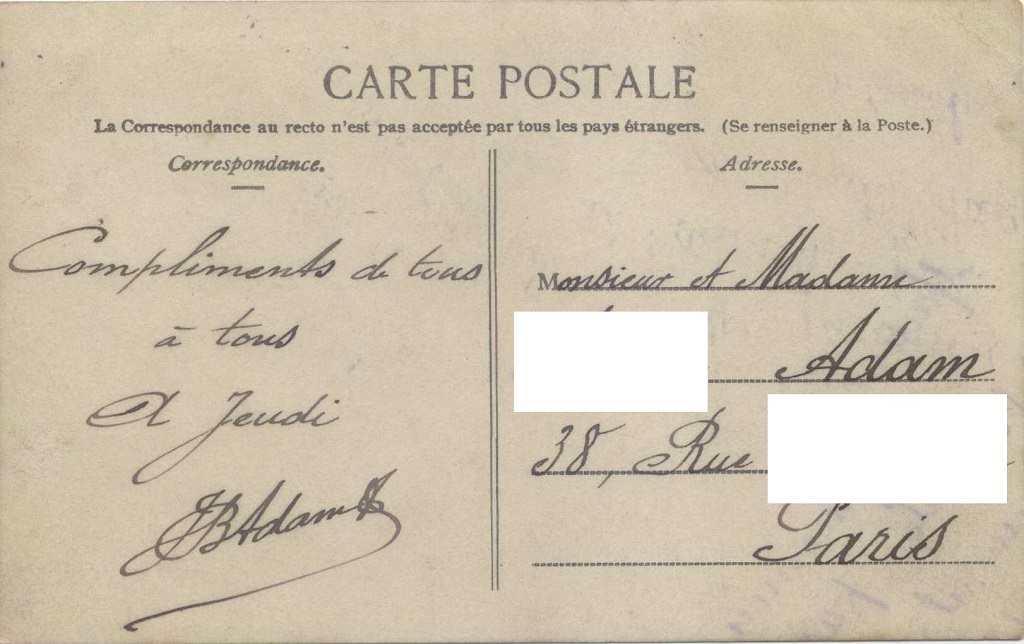 CARTE POSTALE
La Correspondance au recto n'est pas acceptée par tous les pays étrangers. (Se renseigner à la Poste.)
Correspondance.
Compliments de tous
à tous
A Jeudi
JBAdam
Adresse.
Monsieur et Madame
Adam
38, Rue
Paris